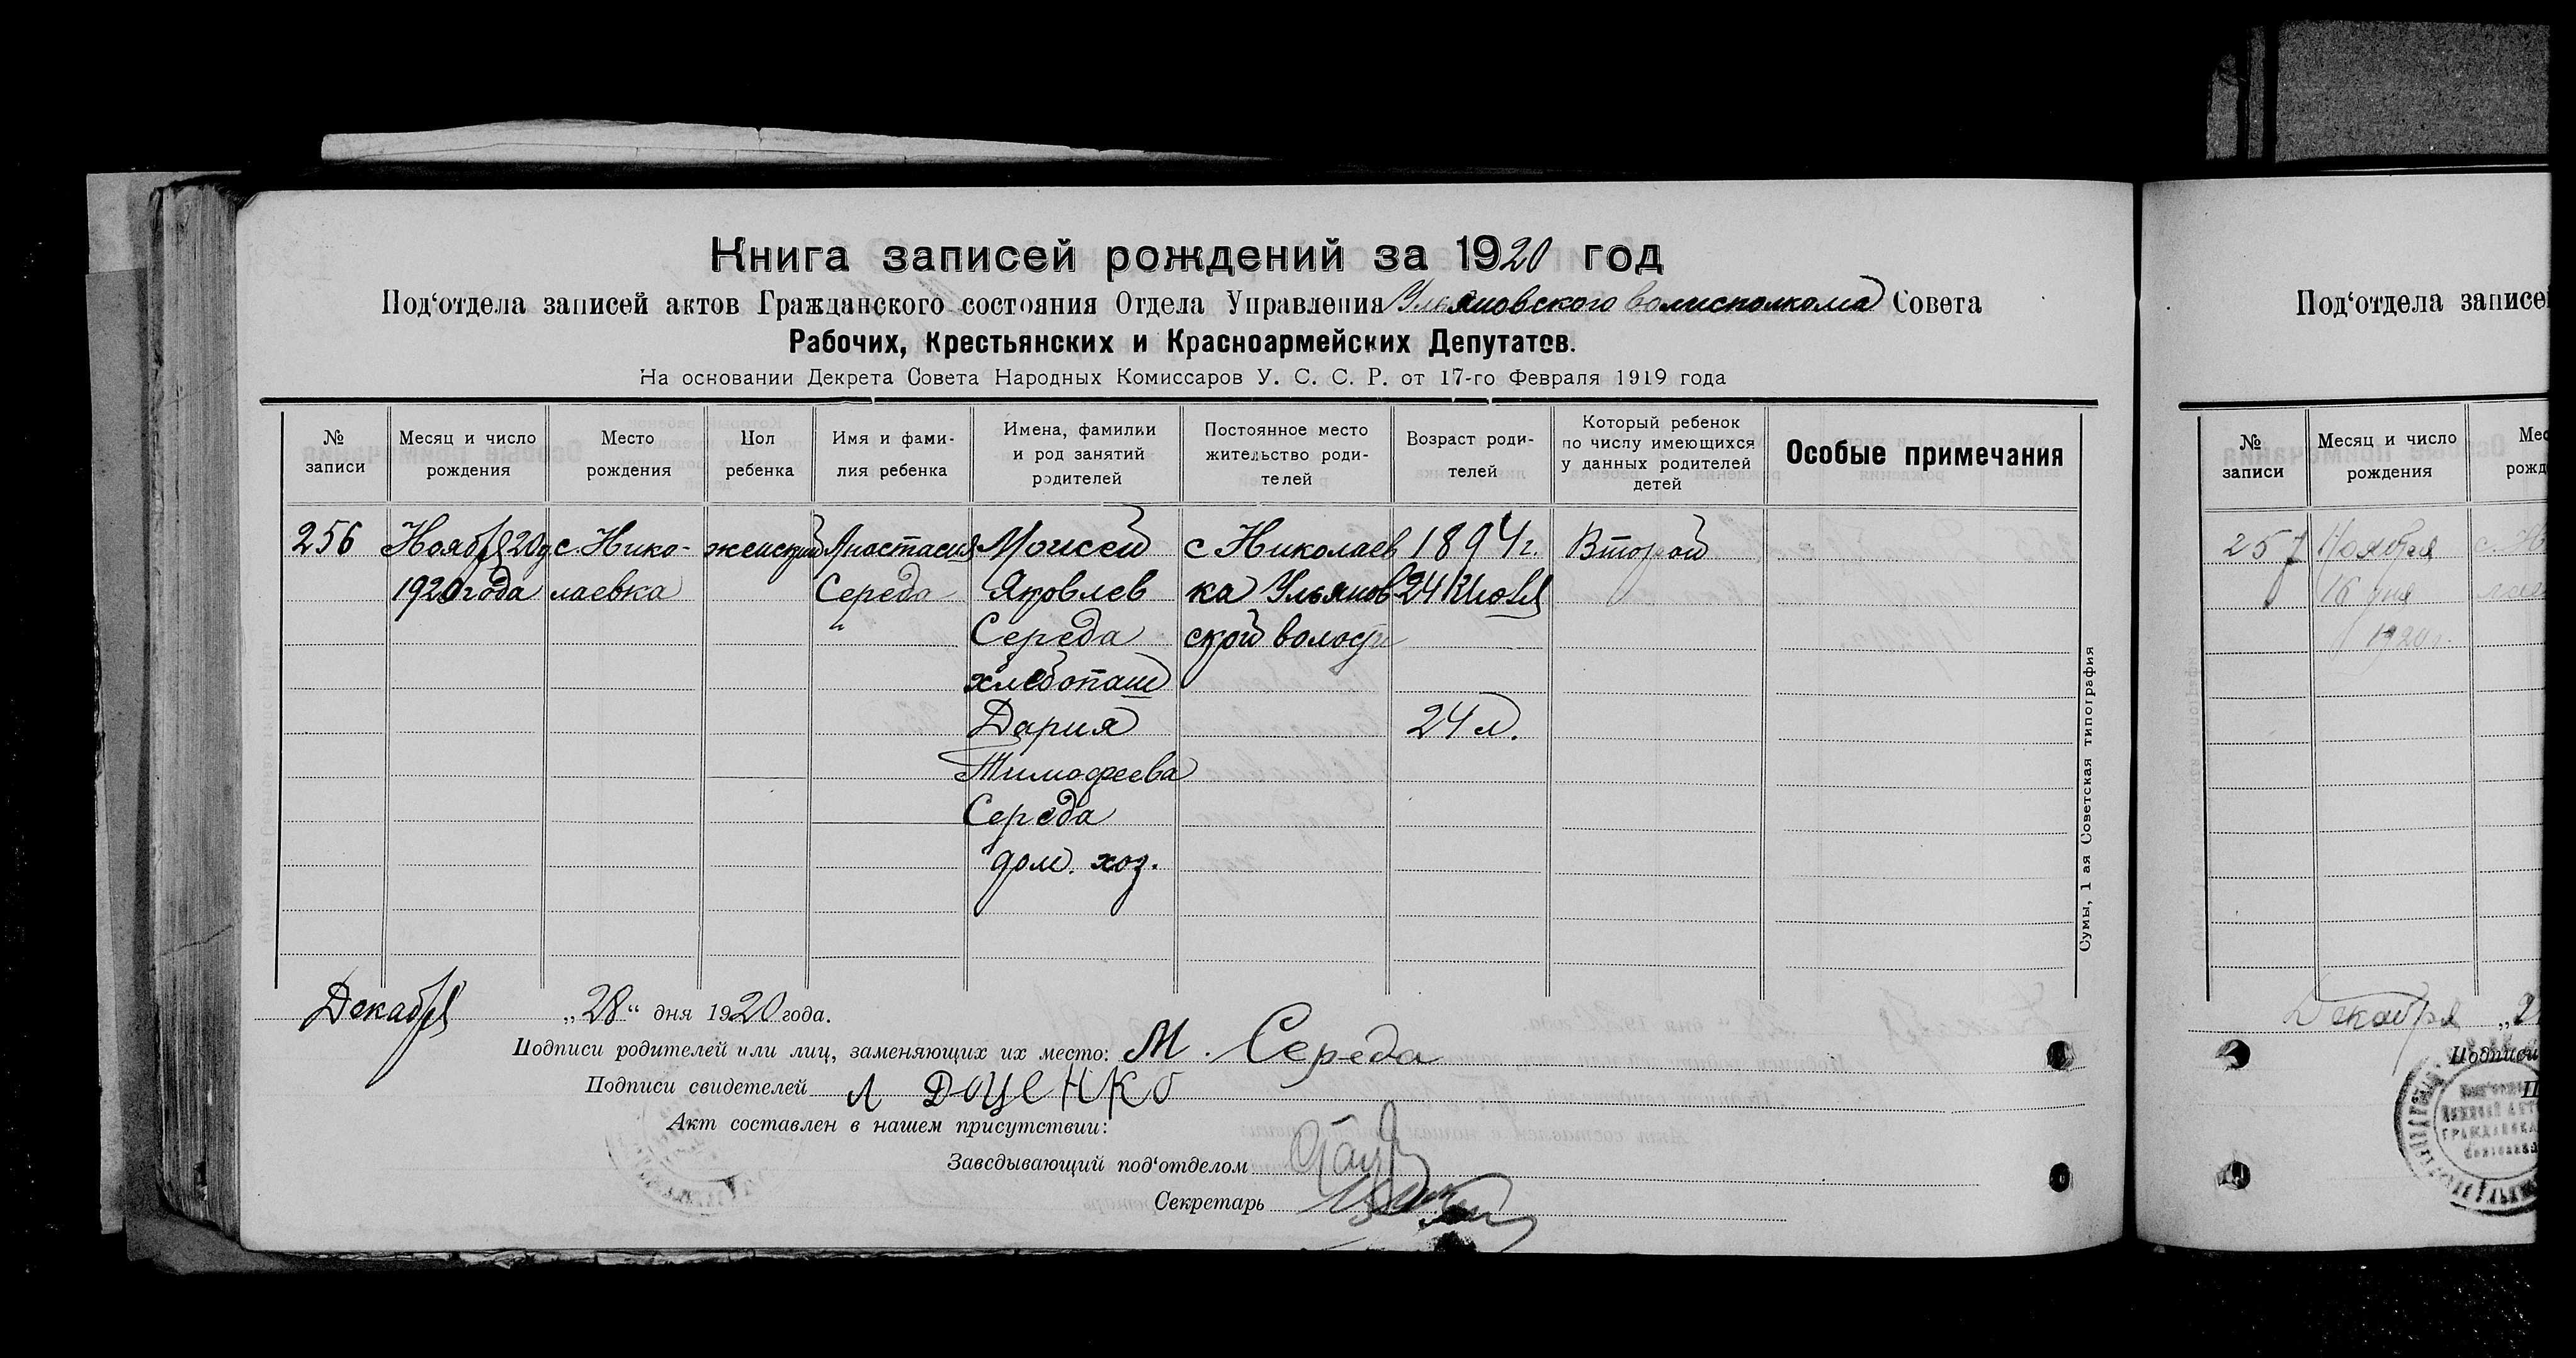 Книга записей рождений за 1920 год
Под‘отдела записей актов Гражданского состояния Отдела Управления Ульяновского волисполкома Совета
Рабочих, Крестьянских и Красноармейских Депутатов.
На основании Декрета Совета Народных Комиссаров У. С. С. Р. от 17-го Февраля 1919 года
№ записи
Месяц и число рождения
Место рождения
Пол ребенка
Имя и фами-
лия ребенка
Имена, фамилии
и род занятий
родителей
Постоянное место
жительство роди-
телей
Возраст роди-
телей
Который ребенок
по числу имеющихся
у данных родителей
детей
Особые примечания
256
Ноябр 20д
1920 года
с. Нико-
лаевка
женский
Анастасия
Середа
"
Моисей
Яковлев
Середа
хлебопаш
Дария
Тимофеева
Середа
дом. хоз.
с Николаев
ка Ульянов
ской волости
1894 г.
24 Июля
24 л.
Второй
Сумы, 1 ая Советская типография
Декабря „28“ дня 1920 года.
Подписи родителей или лиц, заменяющих их место: М. Середа
Подписи свидетелей Л ДОЦЕНКО
Акт составлен в нашем присутствии:
Заведывающий под‘отделом
Секретарь
Под‘отдела записе
№ записи
Месяц и число рождения
Мес
рожд
257
Ноября
16 дня
1920 г.
с. Н
лаев
Декабря „2
Подписи
П